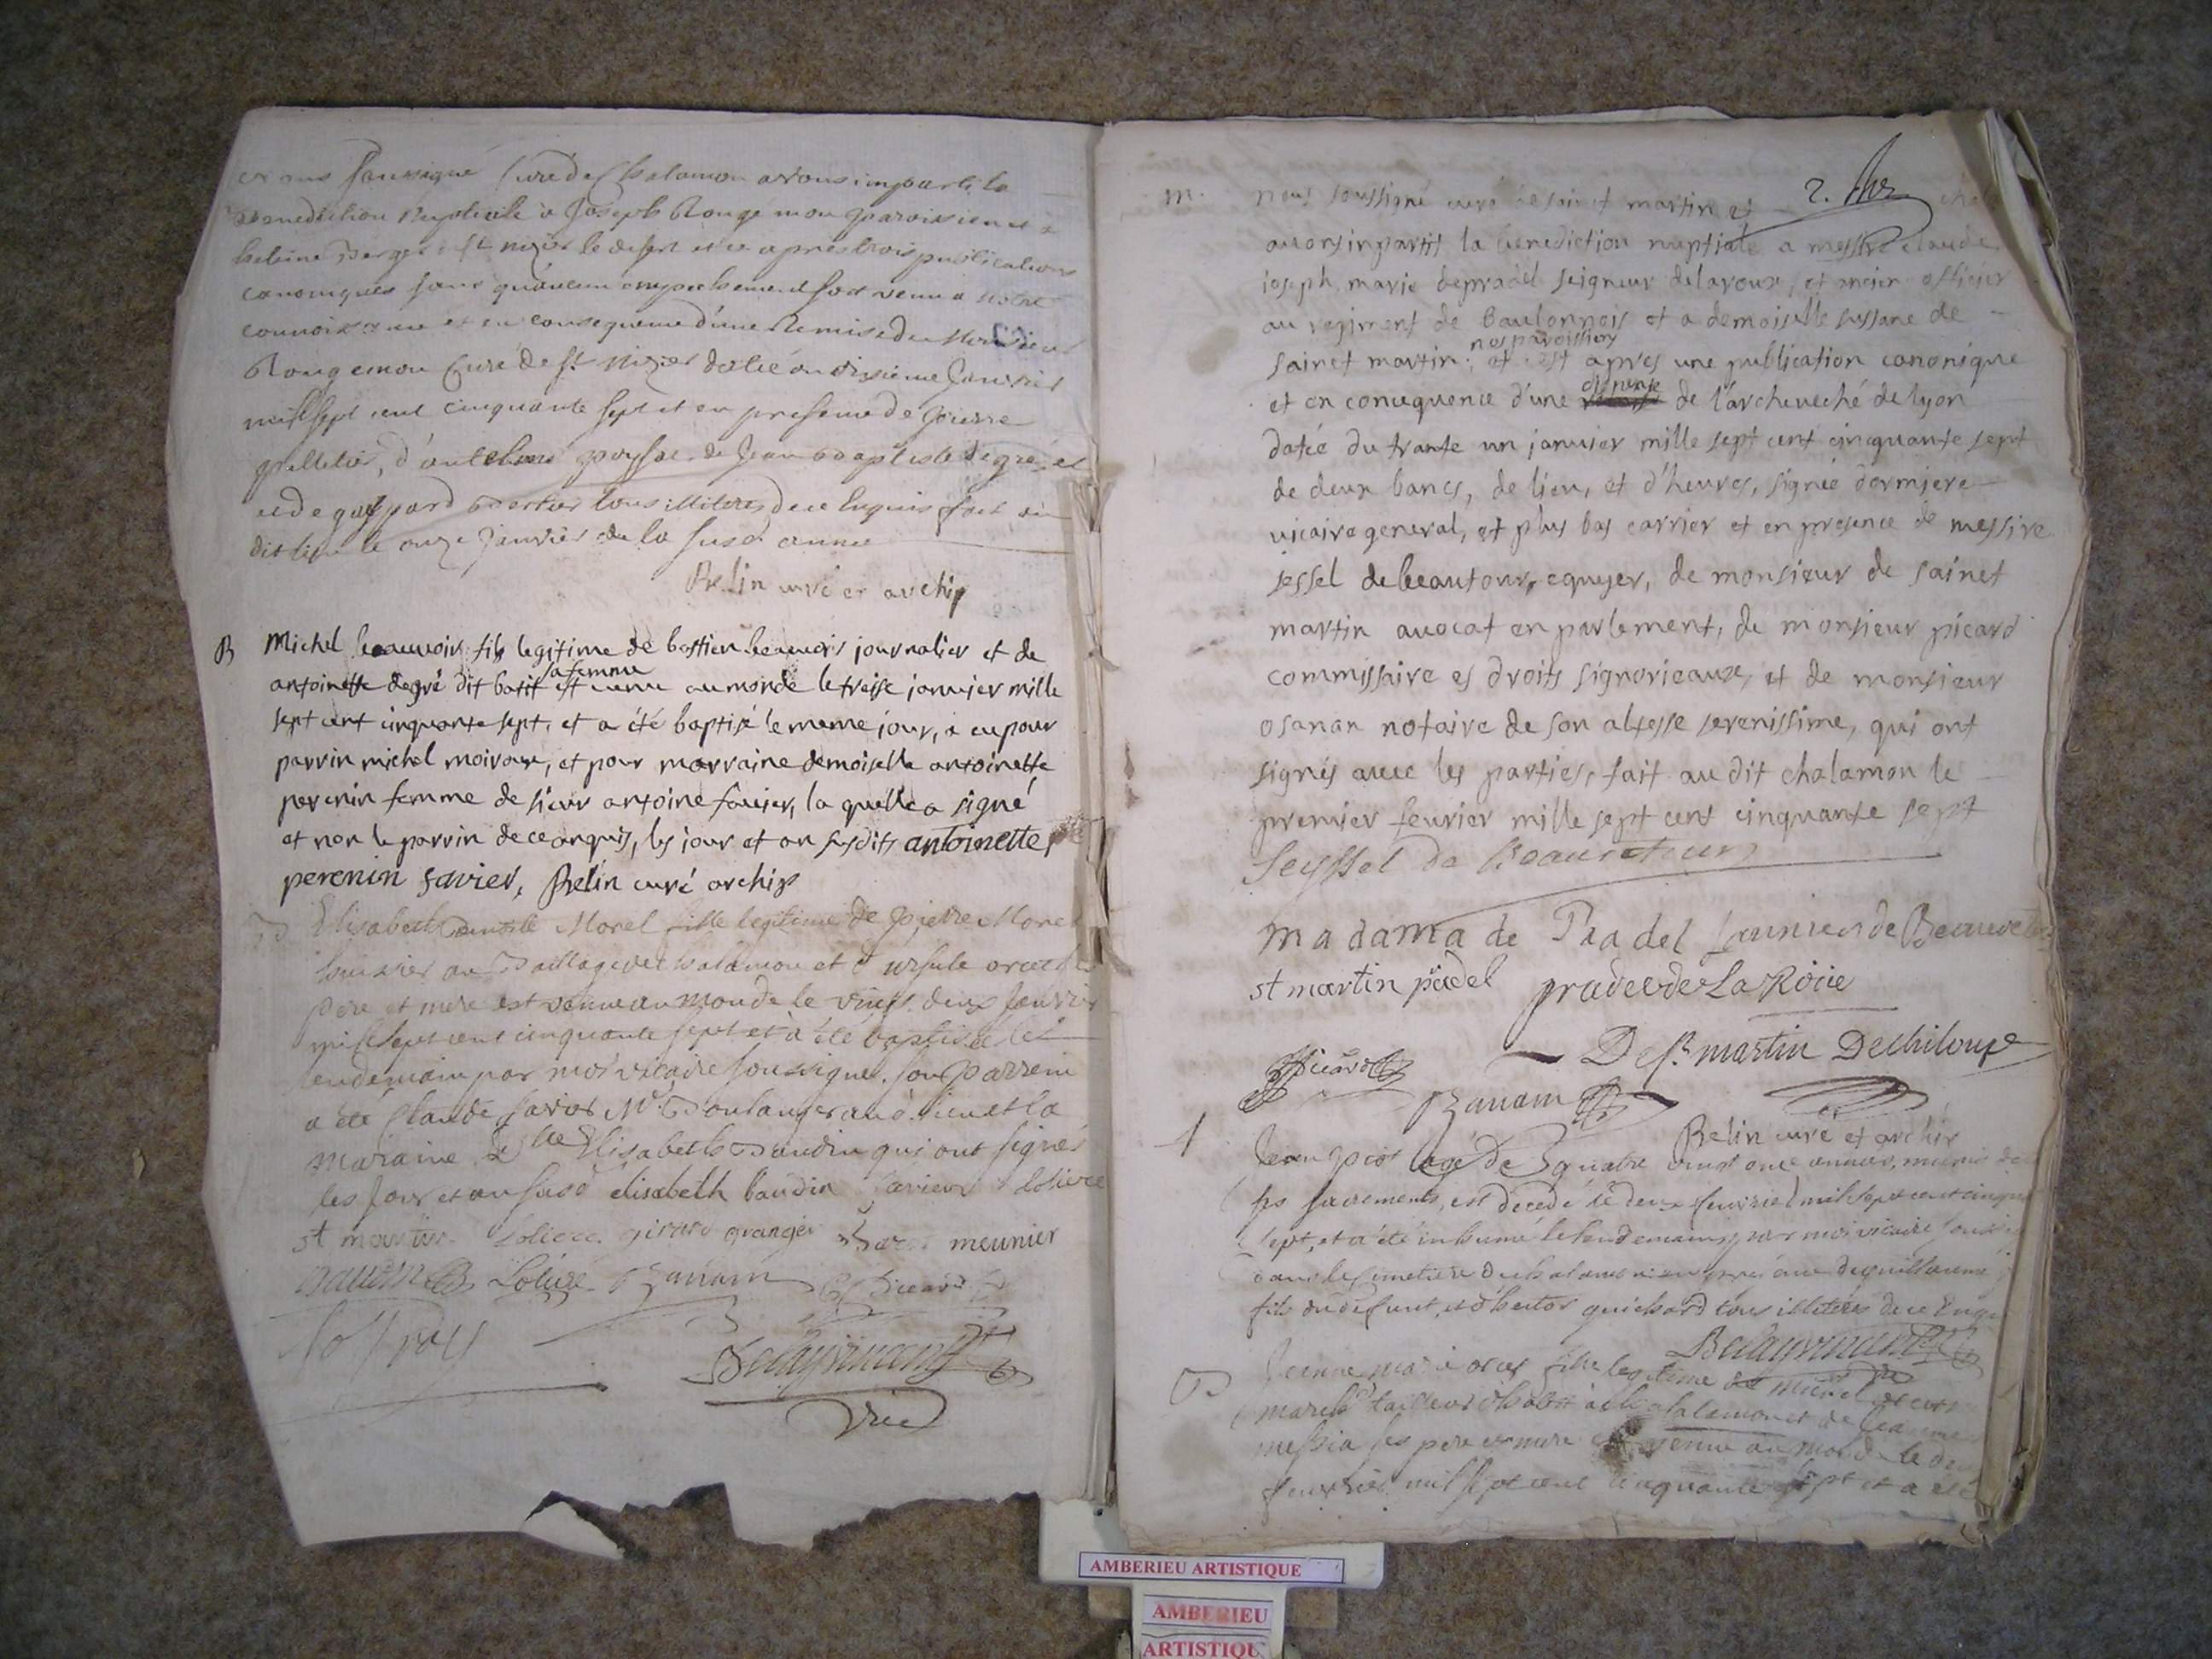 soussigné Curé de Chalamon avons imparti la
benediction nuptiale à Joseph Rouge mon paroissien et a
heleine Berger de st nizier le desert et ce apres trois publications
canoniques sans qu'aucun empechement soit venu a notre
connoissance et en consequence d'une Remise de Monsieur
Rougemon Curé de st nizier dattée du dixieme Janvier
mil sept cent cinquante sept et en presence de pierre
pelletier, d'anthelme de Jean baptiste degré, et
et de gaspard tous illiterés de ce Enquis fait au
dit lieu le onze Janvier de la susd annee
Belin curé et archip
B Michel beauvoir fils legitime de bastien beauvoir journalier et de
antoinette degré dit batit sa femme est venu au monde le treise janvier mille
sept cent cinquante sept, et a été baptisé le meme jour, a eu pour
parrin michel moiroux, et pour marraine demoiselle antoinette
perenin femme de sieur antoine favier, la quelle a signé
et non le parrin de ce anquis, les jour et an susdits antoinette
perenin favier, Belin curé archip
B Elisabeth Morel fille legitime de pierre Morel
huissier au Baillage de chalamon et d'ursule
pere et mere est venue au monde le vingt deux Janvier
mil sept cent cinquante sept et a été baptisée le
lendemain par moi vicaire soussigné. son parrein
a été Claude favier Me Boulanger aud. lieu et la
maraine Dlle Elisabeth Baudin qui ont signés
les Jour et an susd elisabeth baudin favier
st martin girard granger meunier
Bauam Picard
Belayvincent
vic
m. nous soussigné curé de sainct martin et
avons impartit la benediction nuptiale a messire claude
ioseph marie depradel seigneur delaroux, et ancien officier
au regiment de Boulonnois et a demoiselle sussane de
sainct martin nos paroissiens et c'est apres une publication canonique
et en concequence d'une dispense de l'archeveché de lyon
datée du trante un janvier mille sept cent cinquante sept
de deux bancs, de lieu, et d'heures, signée dormiere
vicaire general, et plus bas carrier et en presence de messire
sessel de beautour, equyer, de monsieur de sainct
martin avocat en parlement, de monsieur picard
commissaire es droits signorieaux, et de monsieur
osanan notaire de son altesse serenissime, qui ont
signés avec les parties, fait au dit chalamon le
premier fevrier mille sept cent cinquante sept
Seyssel de Beauretour
madama de Pradel
st martin pradel pradel de La Roüe
De st martin Dechiloup
Picard
Bauam
Belin curé et archip
Jean agé de quatre vingt onze années, munis de
ses sacrements, est decedé le deux fevrier mil sept cent cinqu
sept, et a été inhumé le lendemain par moi vicaire sous
dans le Cimetiere de chalamon en presence de guillaume
fils du defunt, et d'hector guichard tous illiterés de ce Enqu
Belayvincent
vic
B Jeanne marie fille legitime de michel
march tailleur d'habit a chalamon et de Jeanne
messia ses pere et mere est venue au monde le
fevrier mil sept cent cinquante sept et a eté
AMBERIEU ARTISTIQUE
AMBERIEU
ARTISTIQU